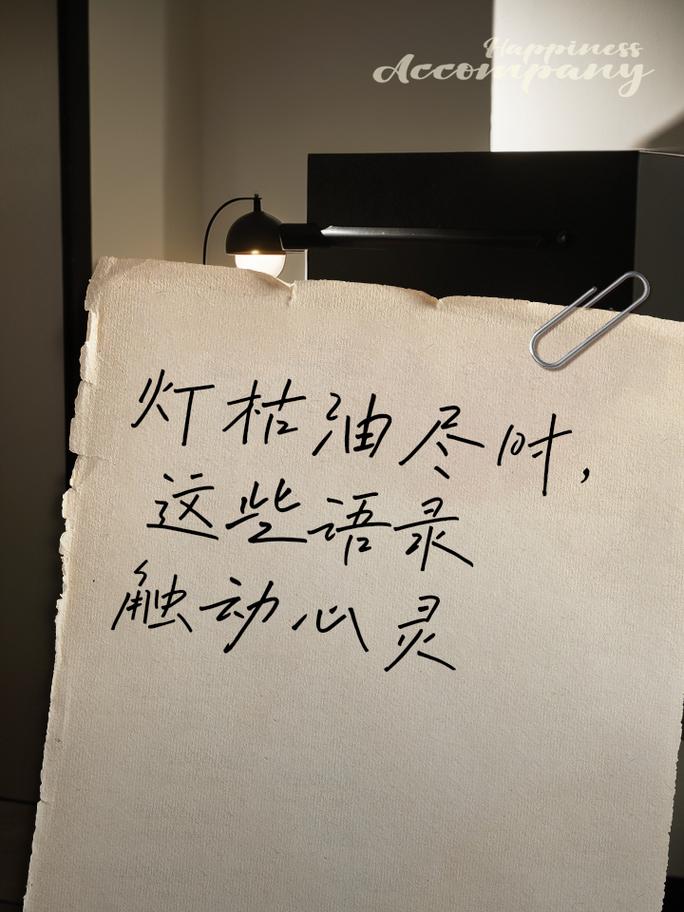 Happiness
Accompany
灯枯油尽时，
这些语录
触动心灵